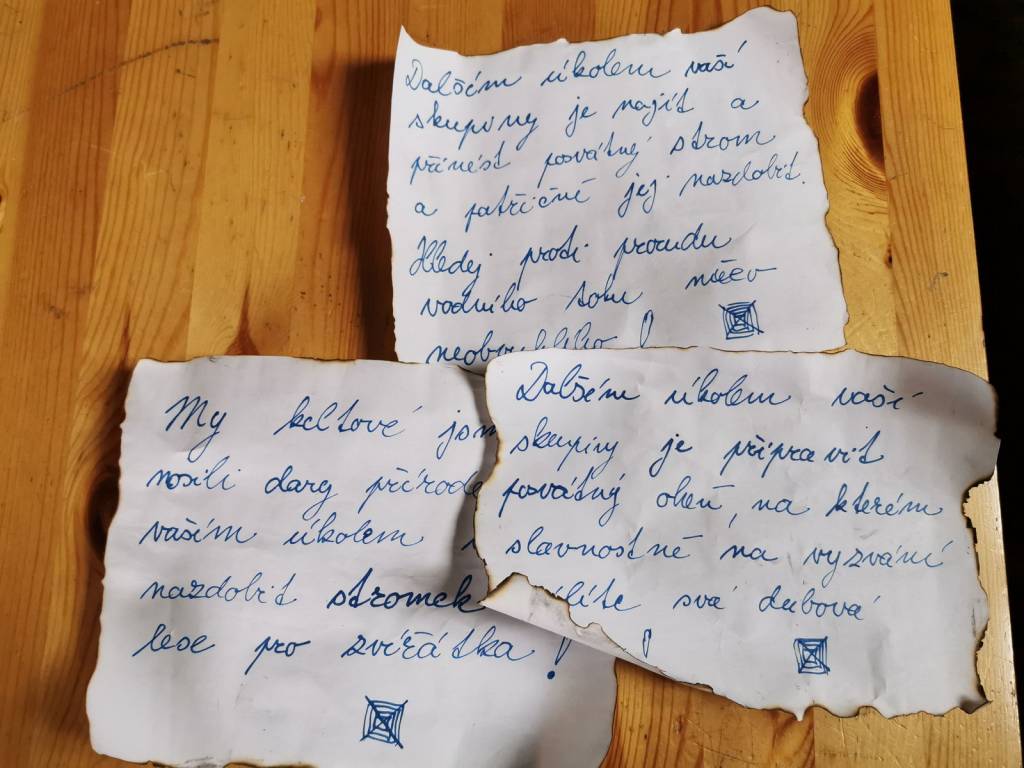 Dalším úkolem vaší
skupiny je najít a
přinést posvátný strom
a patřičně jej nazdobit.
Hledej proti proudu
vodního toku něco
!
My keltové
nosili dary přírodě
vaším úkolem
nazdobit stromek
lese pro zvířátka!
Dalším úkolem vaší
skupiny je připravit
posvátný oheň, na kterém
slavnostně na vyzvání
svá dubová
!